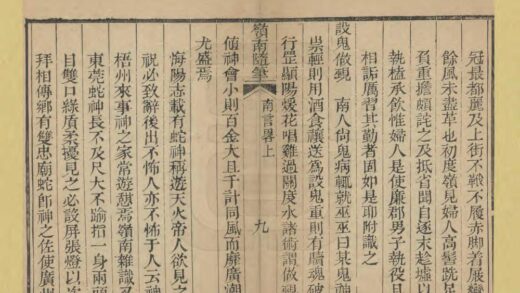 冠最都麗及上街不韈不履赤脚着屐蠻
餘風未盡革也初度嶺見婦人高髻跣足
負重擔頗詫之及抵省閱自逐末趁墟以
執榼承飮惟婦人是使廉郡男子執役且
相詬厲習其勤者固如是耶附識之
設鬼做覡 南人尙鬼病輒就巫巫曰某鬼
祟輕則用酒食禳送爲設鬼重則有贖魂破
行罡顯陽煖花唱雞過關度水諸術謂做覡
嶺南隨筆 南言畧上 九
傾神會小則百金大且千計同風而廉廣潮
尤盛焉
海陽志載有蛇神稱遊天大帝人欲見之
祝必致辭後出不怖人亦不怖于人云神
梧州來事神之家常遊憇焉嶺南雜識
東莞蛇神長不及尺大不踰指一身兩頭
目雙口綠質柔擾見之必設屛張燈以
拜相傳鄕有雙忠廟蛇卽神之佐使廣州